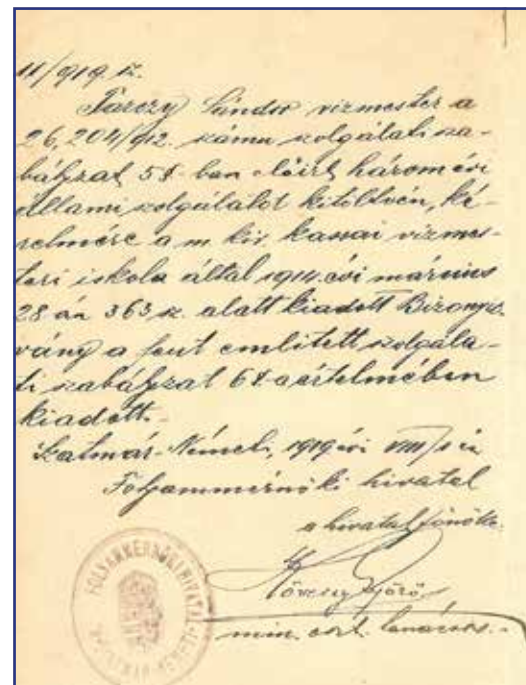 11/919. sz.
Tarczy Sándor vizmester a
26,204/912. számu szolgálati sza-
bályzat 5§-ban előirt három évi
állami szolgálatot kitöltvén, ké-
relmére a m. kir. kassai vizmes-
teri iskola által 1914. évi március
28 án 363 sz. alatt kiadott Bizonyit-
vány a fent emlitett szolgála-
ti szabályzat 6§-a értelmében
kiadott.-
Szatmár-Németi, 1919 évi VIII/1 én
Folyammérnöki hivatal
a hivatal főnöke:
Győző
min. oszt. tanácsos.-
FOLYAMMÉRNÖKI HIVATAL